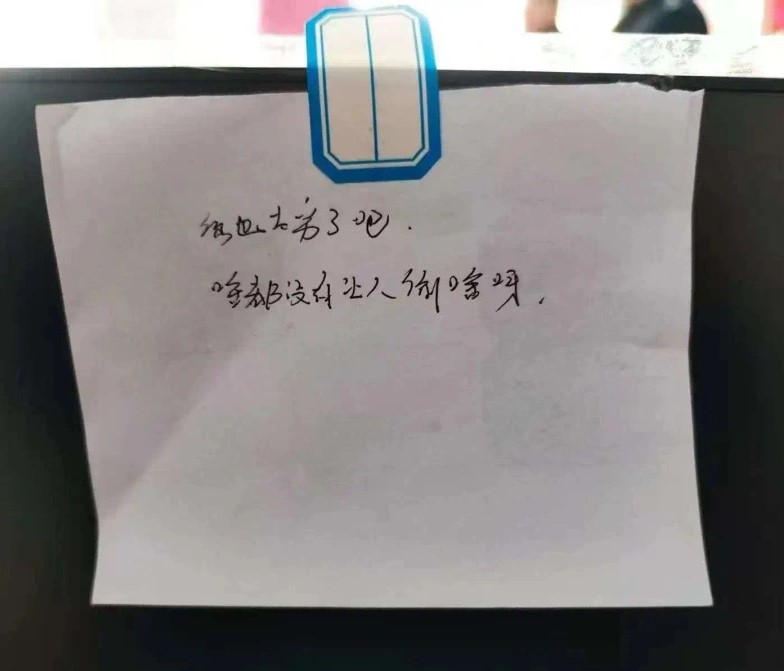 你也太穷了吧.
啥都没有让人偷啥呀.